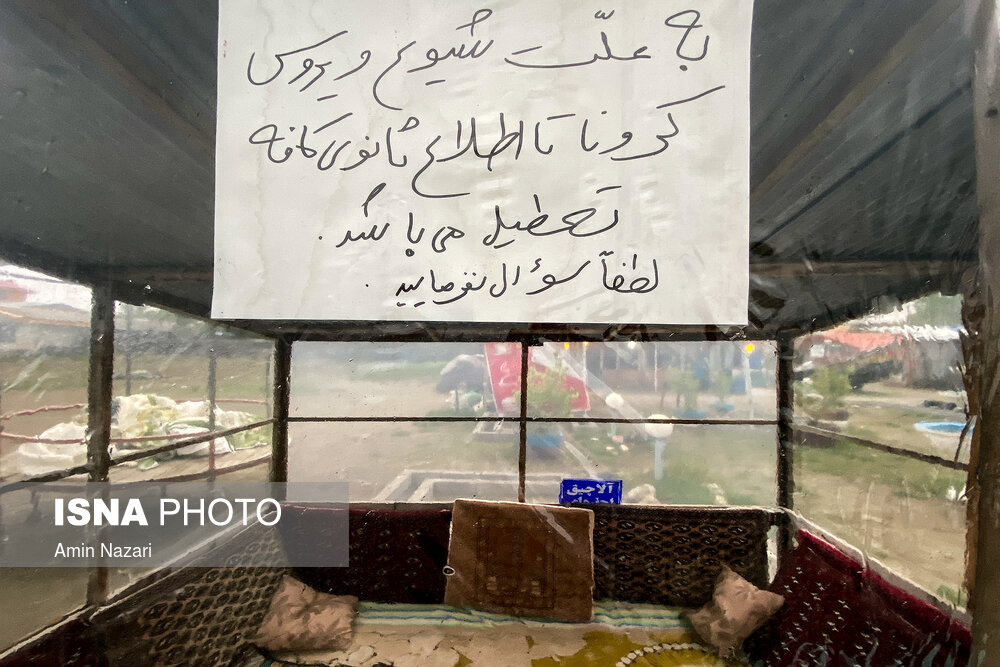 به علّت شیوع ویروس
کرونا تا اطلاع ثانوی کافه
تعطیل می باشد.
لطفاً سؤال نفرمایید.
آلاچیق
ISNA PHOTO
Amin Nazari